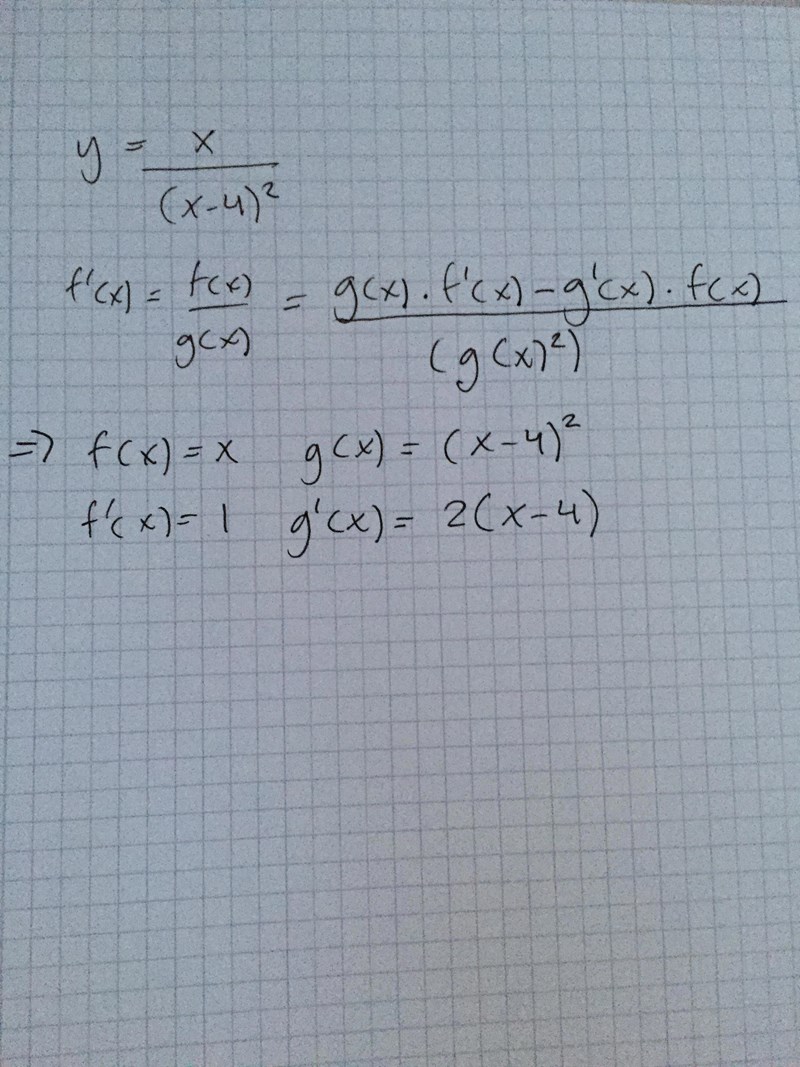 y = x / (x-4)²
f'(x) = f(x) / g(x) = g(x) · f'(x) - g'(x) · f(x) / (g(x)²)
=> f(x) = x g(x) = (x-4)²
f'(x) = 1 g'(x) = 2(x-4)